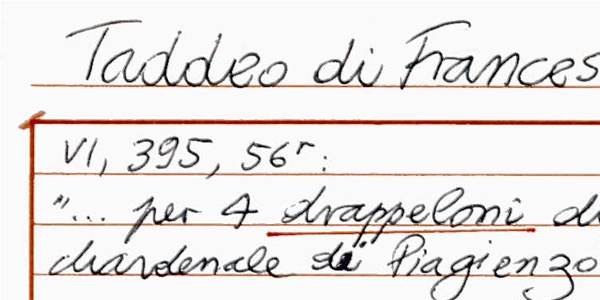 Taddeo di Frances
VI, 395, 56r:
"... per 4 drappeloni di
chardenale di Piagienzo